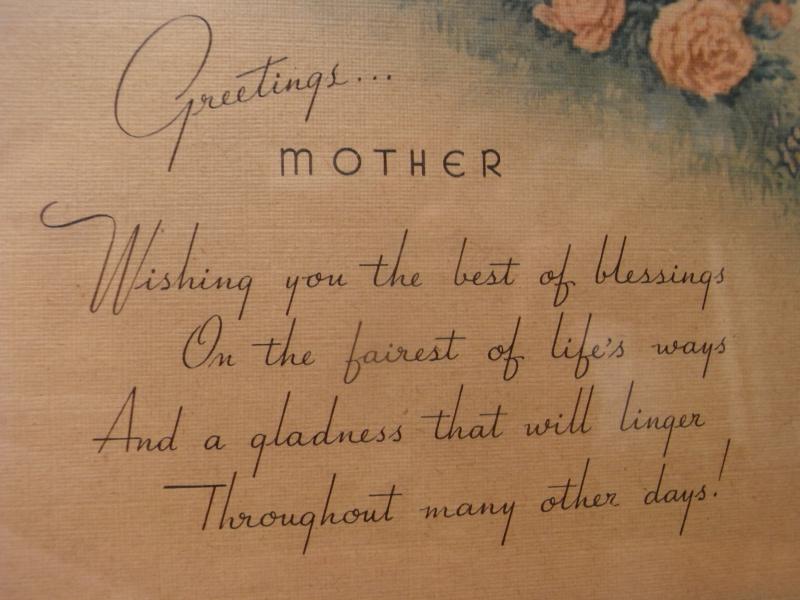 Greetings...
MOTHER
Wishing you the best of blessings
On the fairest of life's ways
And a gladness that will linger
Throughout many other days!